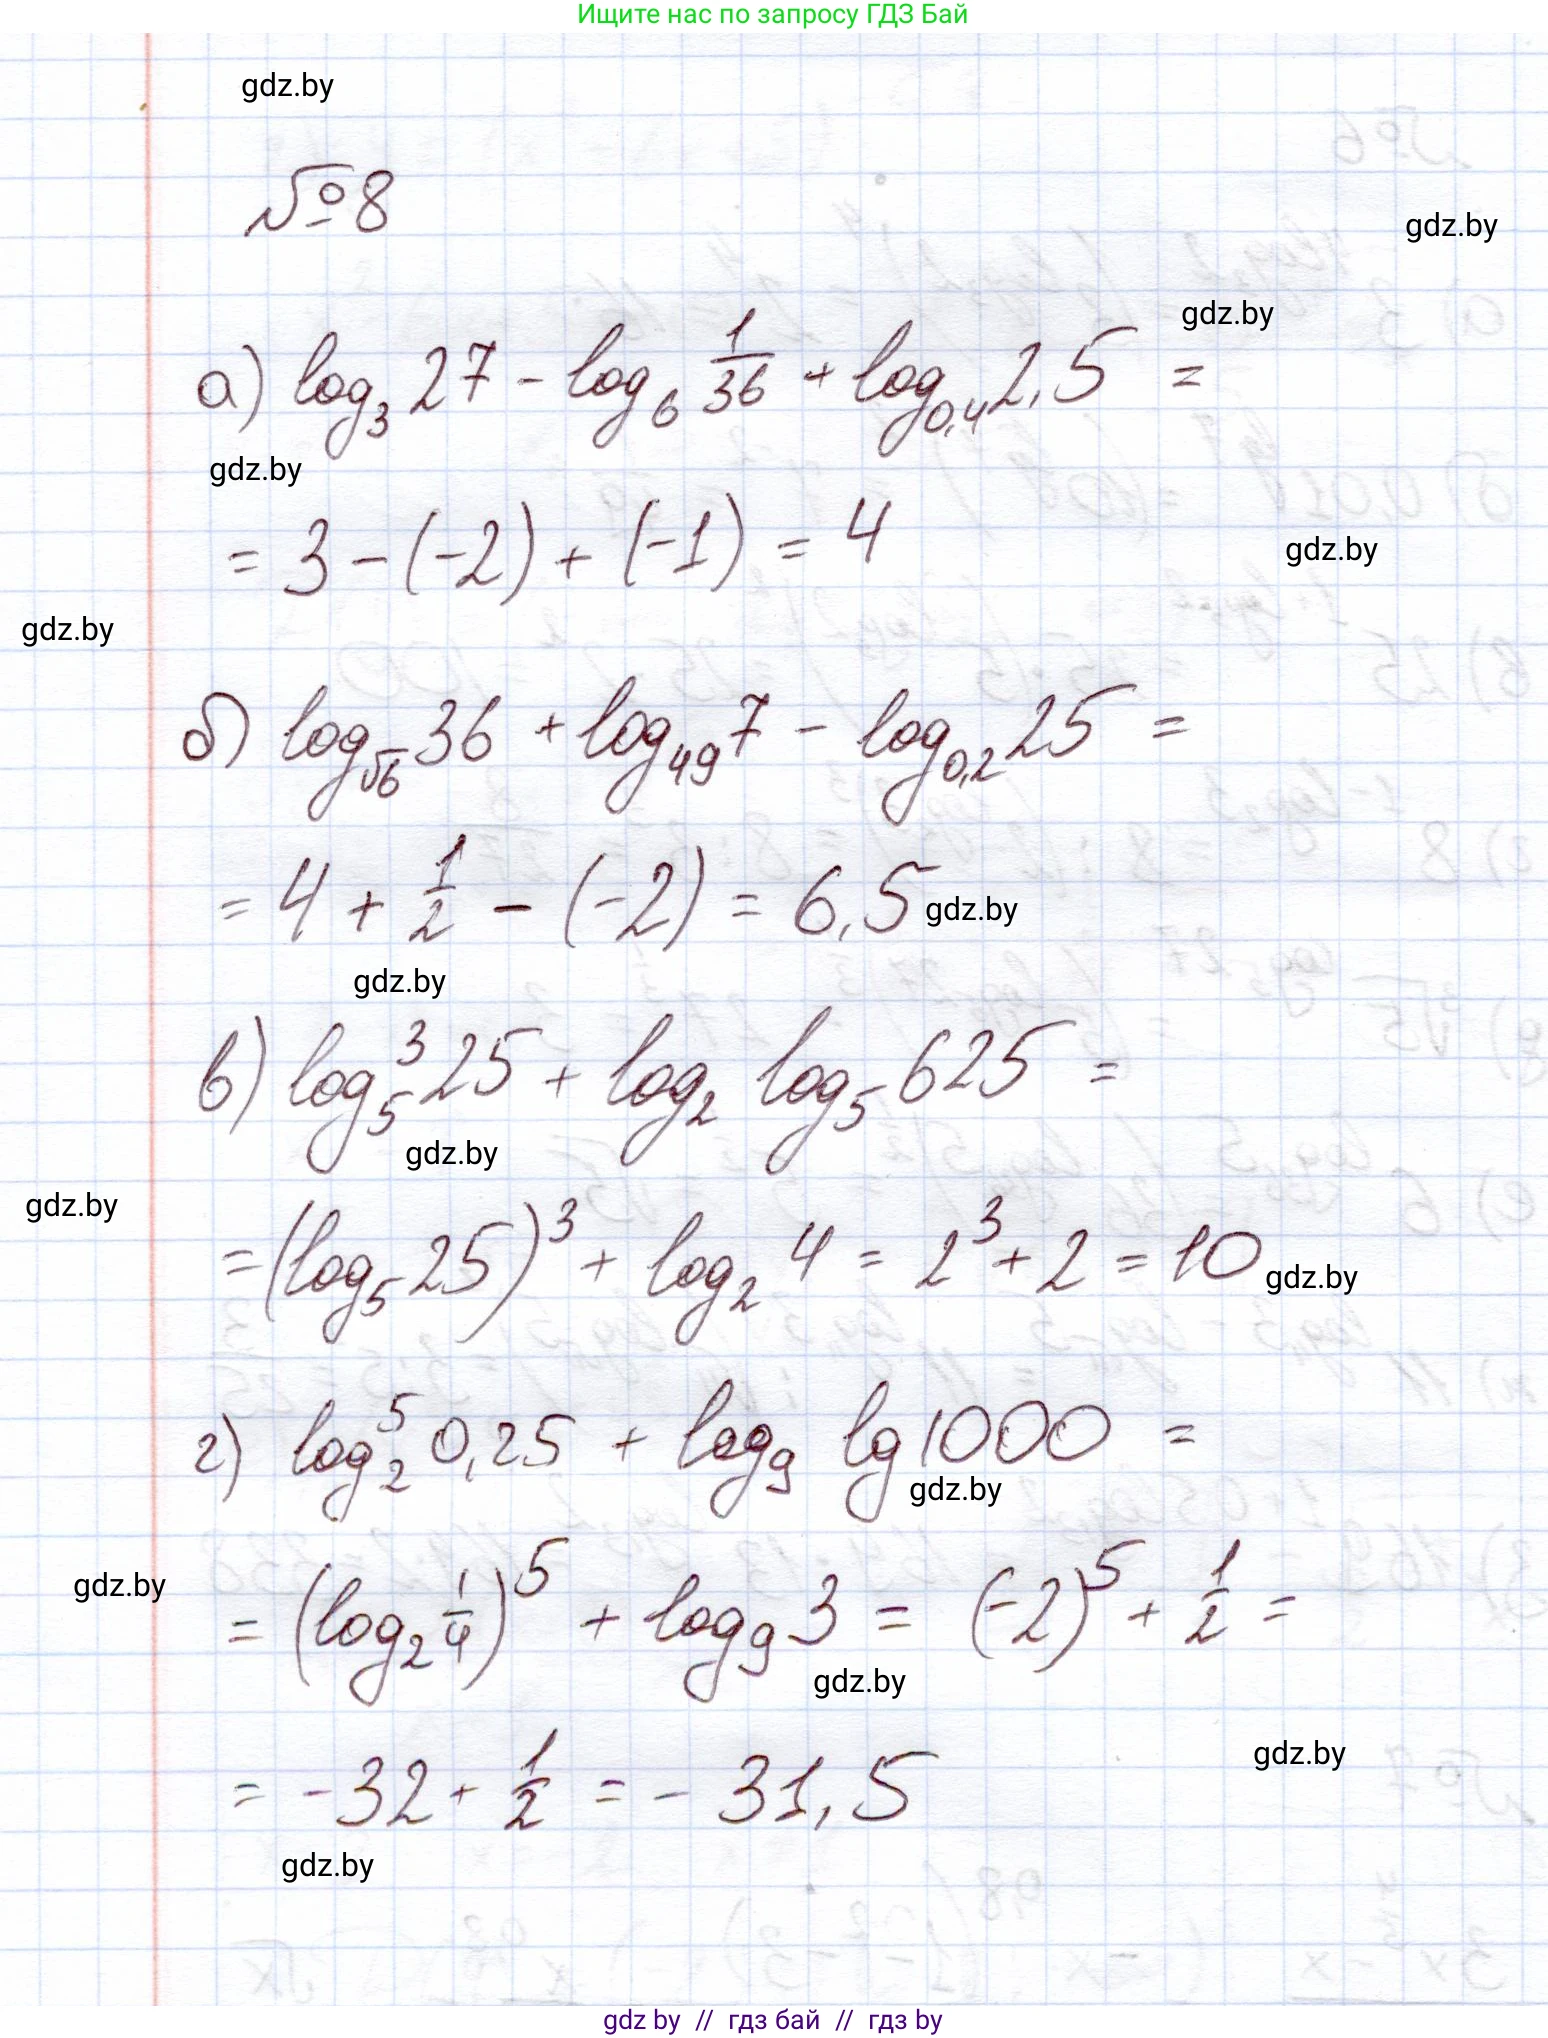 Ищите нас по запросу ГДЗ Бай
gdz.by
№8
gdz.by
gdz.by
а) log₃ 27 - log₆ 1/36 + log₀,₄ 2,5 =
gdz.by
= 3 - (-2) + (-1) = 4
gdz.by
gdz.by
б) log_√6 36 + log₄₉ 7 - log₀,₂ 25 =
= 4 + 1/2 - (-2) = 6,5
gdz.by
gdz.by
в) log₅³ 25 + log₂ log₅ 625 =
gdz.by
gdz.by
= (log₅ 25)³ + log₂ 4 = 2³ + 2 = 10
gdz.by
г) log₂⁵ 0,25 + log₉ lg 1000 =
gdz.by
gdz.by
= (log₂ 1/4)⁵ + log₉ 3 = (-2)⁵ + 1/2 =
gdz.by
gdz.by
= -32 + 1/2 = - 31,5
gdz.by
gdz by // гдз бай // гдз by